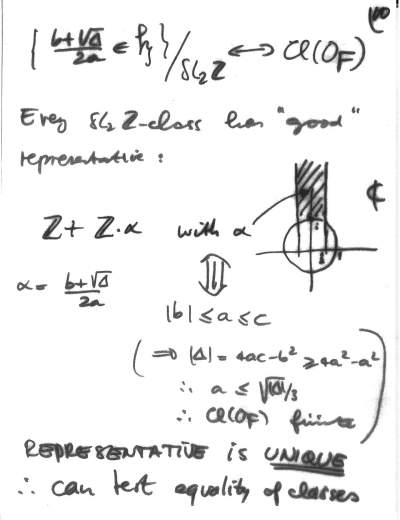 { b+√Δ / 2a ∈ 𝔥 } / SL₂ℤ ↔ Cl(O_F)
Every SL₂ ℤ-class has "good"
representative:
ℂ
ℤ + ℤ·α with α
α = b+√Δ / 2a
|b| ≤ a ≤ c
( ⇒ |Δ| = 4ac-b² ≥ 4a²-a²
∴ a ≤ √|Δ|/3
∴ Cl(O_F) finite )
REPRESENTATIVE is UNIQUE
∴ can test equality of classes